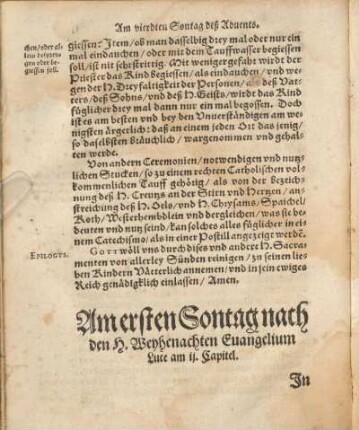 Am vierdten Sontag deß Aduents.
chen/oder al-
lein besprengen
oder be-
giessen soll.
giessen: Item/ ob man dasselbig drey mal oder nur ein
mal eindauchen/ oder mit dem Tauffwasser begiessen
soll/ ist nit sehr strittig. Mit weniger gefahr wirdt der
Priester das Kind begiessen/ als eindauchen/ vnd we-
gen der H. Dreyfaltigkeit der Personen/ als deß Vat-
ters/ deß Sohns/ vnd deß H. Geists/ wirdt das Kind
füglicher drey mal dann nur ein mal begossen. Doch
ist es am besten vnd bey den Vnuerständigen am we-
nigsten ärgerlich: daß an einem jeden Ort das jenig/
so daselbsten bräuchlich/ wargenommen vnd gehal-
ten werde.
Von andern Ceremonien/ notwendigen vnd nutz-
lichen Stucken/ so zu einem rechten Catholischen vol-
kommenlichen Tauff gehörig/ als von der bezeich-
nung deß H. Creutzs an der Stirn vnd Hertzen/ an-
streichung deß H. Oels/ vnd H. Chrysams/ Spaichel/
Koth/ Westerhembdlein vnd dergleichen/ was sie be-
deuten vnd nutz seind/ kan solches alles füglicher in ei-
nem Catechismo/ als in einer Postill angezeigt werdē.
EPILOGVS.
Gott wöll vns durch dises vnd andere H. Sacra-
menten von allerley Sünden reinigen/ zu seinen lie-
ben Kindern Vätterlich annemen/ vnd in sein ewiges
Reich genädigklich einlassen/ Amen.
Am ersten Sontag nach
den H. Weyhenachten Euangelium
Luce am ij. Capitel.
In